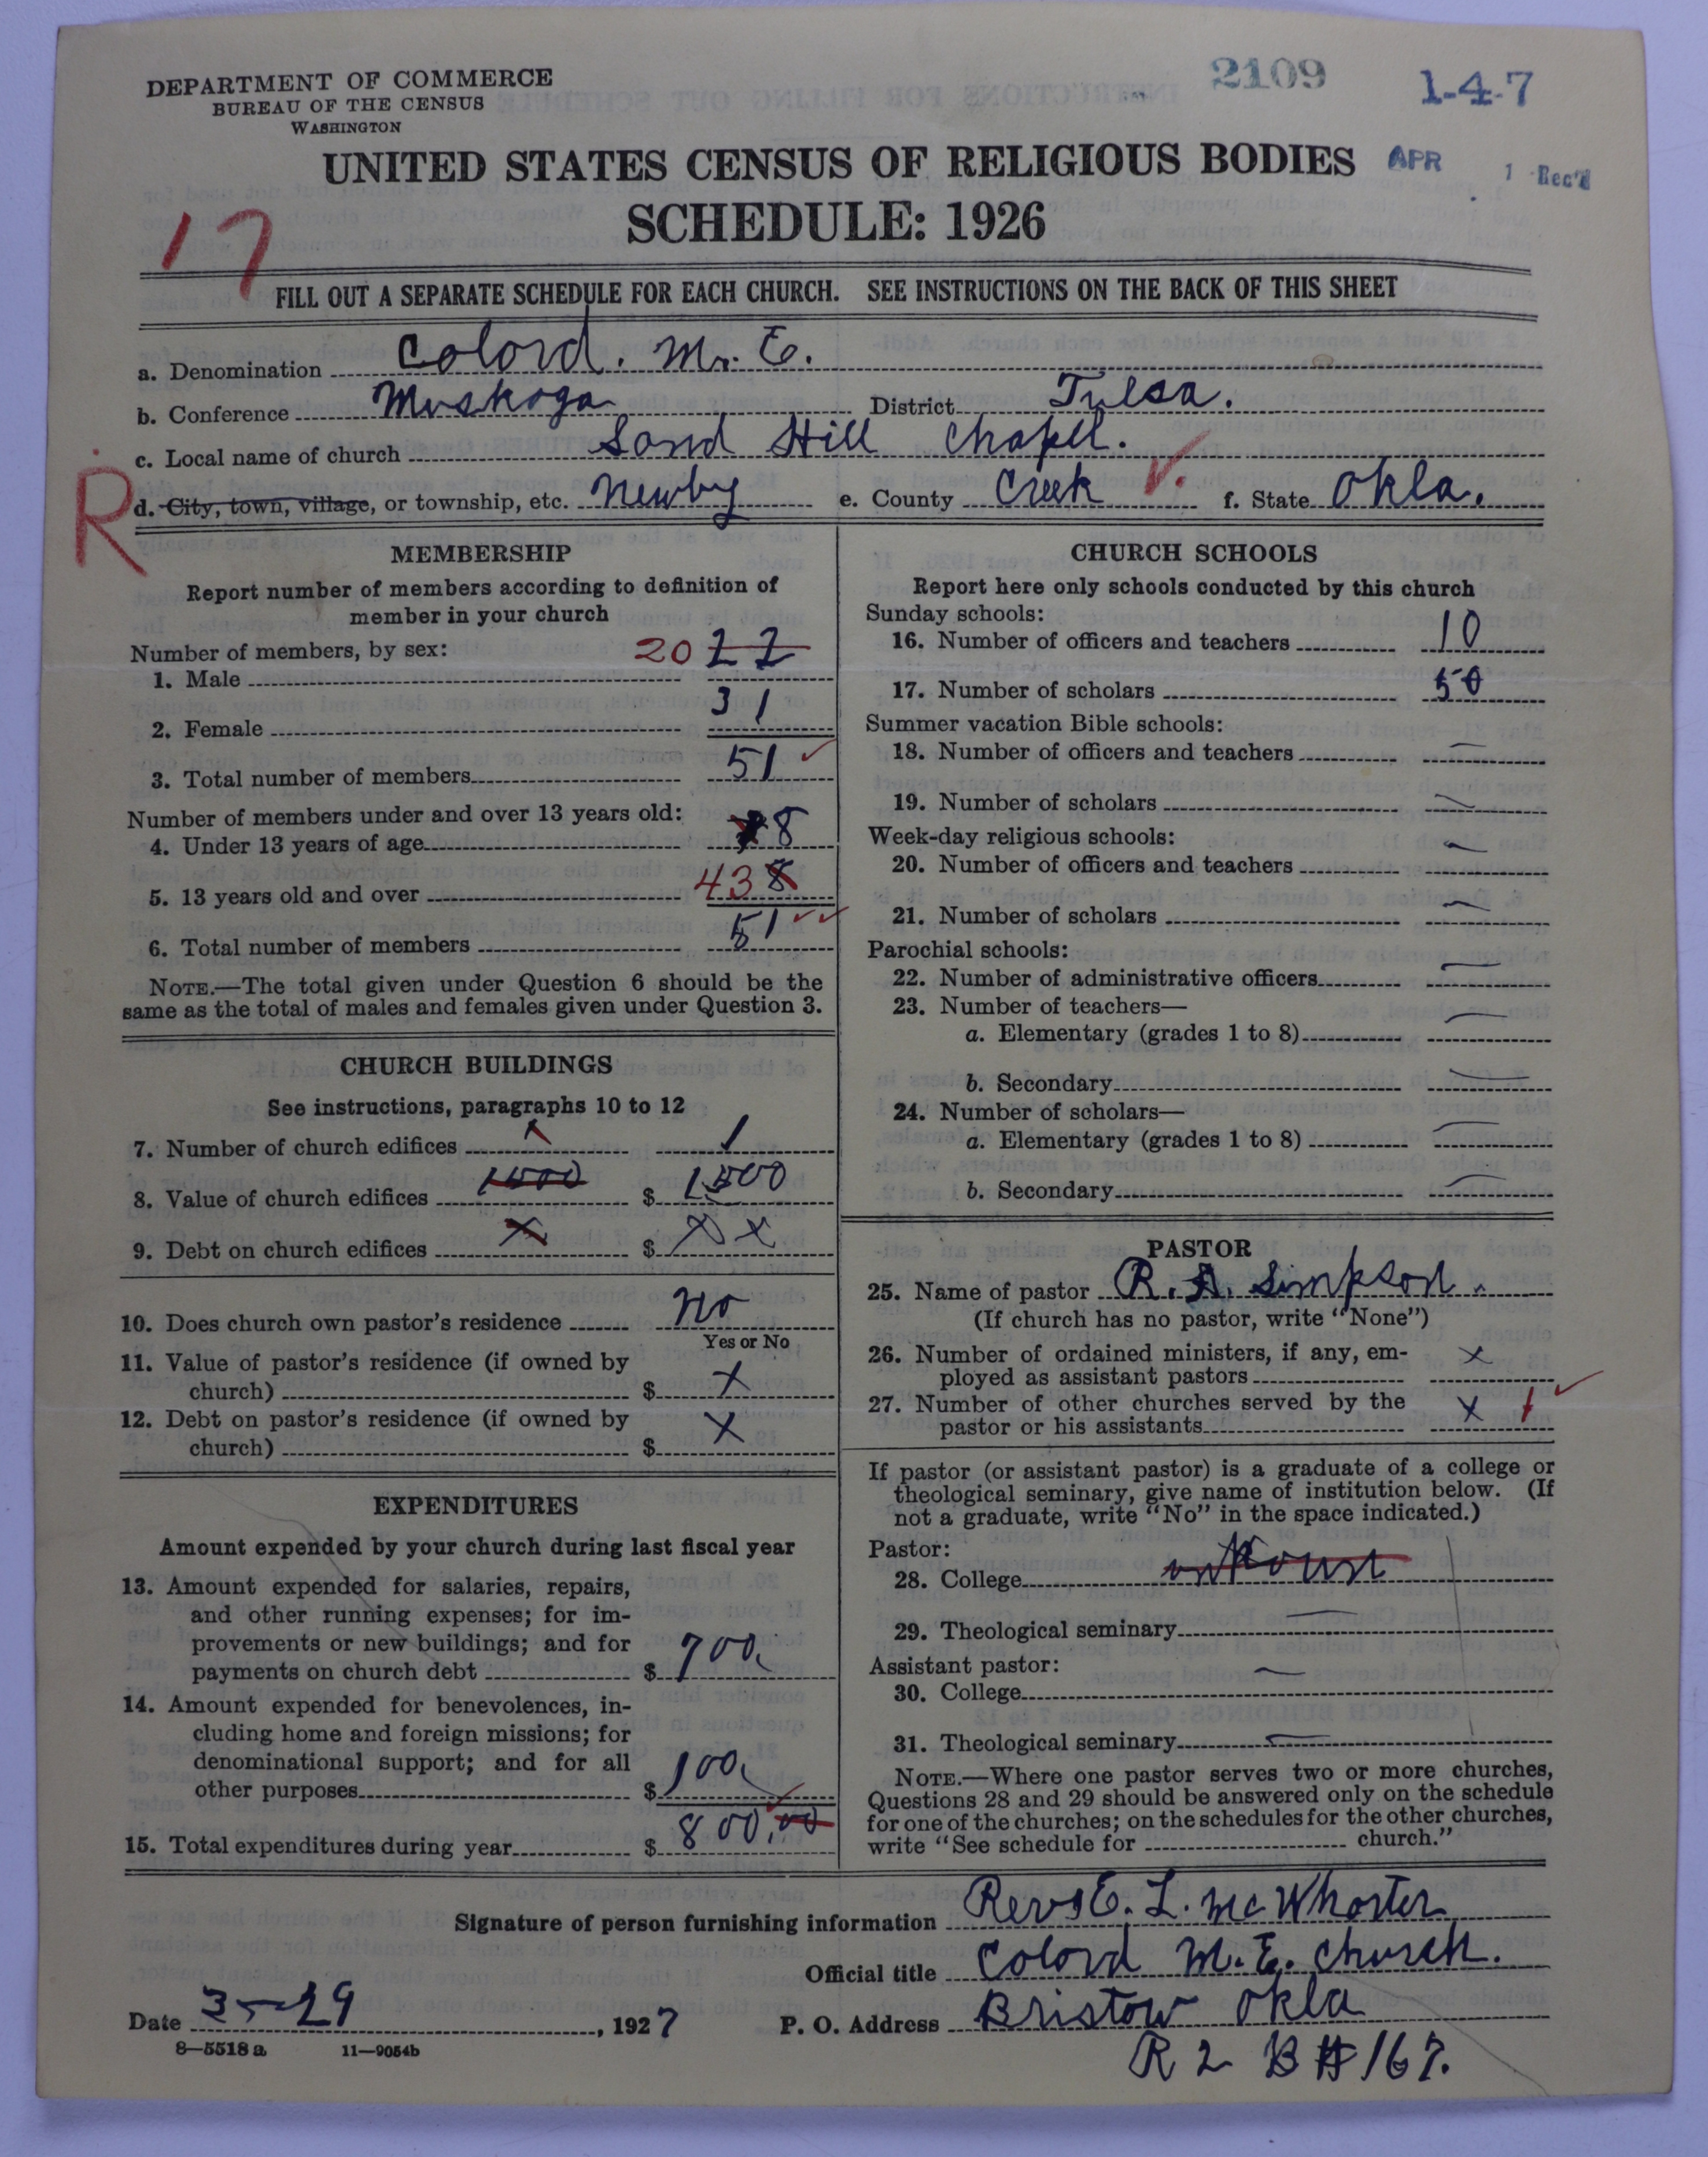 DEPARTMENT OF COMMERCE
BUREAU OF THE CENSUS
WASHINGTON
2109
1-4-7
UNITED STATES CENSUS OF RELIGIOUS BODIES
APR 1 Rec'd
SCHEDULE: 1926
17
FILL OUT A SEPARATE SCHEDULE FOR EACH CHURCH. SEE INSTRUCTIONS ON THE BACK OF THIS SHEET
a. Denomination Colord. M. E.
b. Conference Muskoga District Tulsa.
c. Local name of church Sand Hill Chapel.
R
d. City, town, village, or township, etc. Newby e. County Creek f. State Okla.
MEMBERSHIP
Report number of members according to definition of
member in your church
Number of members, by sex:
1. Male 20 22
2. Female 31
3. Total number of members 51
Number of members under and over 13 years old:
4. Under 13 years of age 8
5. 13 years old and over 43 8
6. Total number of members 51
NOTE.—The total given under Question 6 should be the
same as the total of males and females given under Question 3.
CHURCH BUILDINGS
See instructions, paragraphs 10 to 12
7. Number of church edifices 1 1
8. Value of church edifices 1500 $ 1500
9. Debt on church edifices x $ x x
10. Does church own pastor's residence No
Yes or No
11. Value of pastor's residence (if owned by
church) $ x
12. Debt on pastor's residence (if owned by
church) $ x
EXPENDITURES
Amount expended by your church during last fiscal year
13. Amount expended for salaries, repairs,
and other running expenses; for im-
provements or new buildings; and for
payments on church debt $ 700.
14. Amount expended for benevolences, in-
cluding home and foreign missions; for
denominational support; and for all
other purposes $ 100.
15. Total expenditures during year $ 800.00
CHURCH SCHOOLS
Report here only schools conducted by this church
Sunday schools:
16. Number of officers and teachers 10
17. Number of scholars 50
Summer vacation Bible schools:
18. Number of officers and teachers —
19. Number of scholars —
Week-day religious schools:
20. Number of officers and teachers —
21. Number of scholars —
Parochial schools:
22. Number of administrative officers —
23. Number of teachers—
a. Elementary (grades 1 to 8) —
b. Secondary —
24. Number of scholars—
a. Elementary (grades 1 to 8) —
b. Secondary —
PASTOR
25. Name of pastor R. A. Simpson.
(If church has no pastor, write "None")
26. Number of ordained ministers, if any, em-
ployed as assistant pastors x
27. Number of other churches served by the
pastor or his assistants x 1
If pastor (or assistant pastor) is a graduate of a college or
theological seminary, give name of institution below. (If
not a graduate, write "No" in the space indicated.)
Pastor:
28. College
29. Theological seminary —
Assistant pastor:
30. College —
31. Theological seminary —
NOTE.—Where one pastor serves two or more churches,
Questions 28 and 29 should be answered only on the schedule
for one of the churches; on the schedules for the other churches,
write "See schedule for church."
Signature of person furnishing information E. L. McWhorter
Official title Colord M. E. Church.
Date 3-29, 1927 P. O. Address Bristow Okla
8—5518 a 11—9054b
R 2 B # 167.